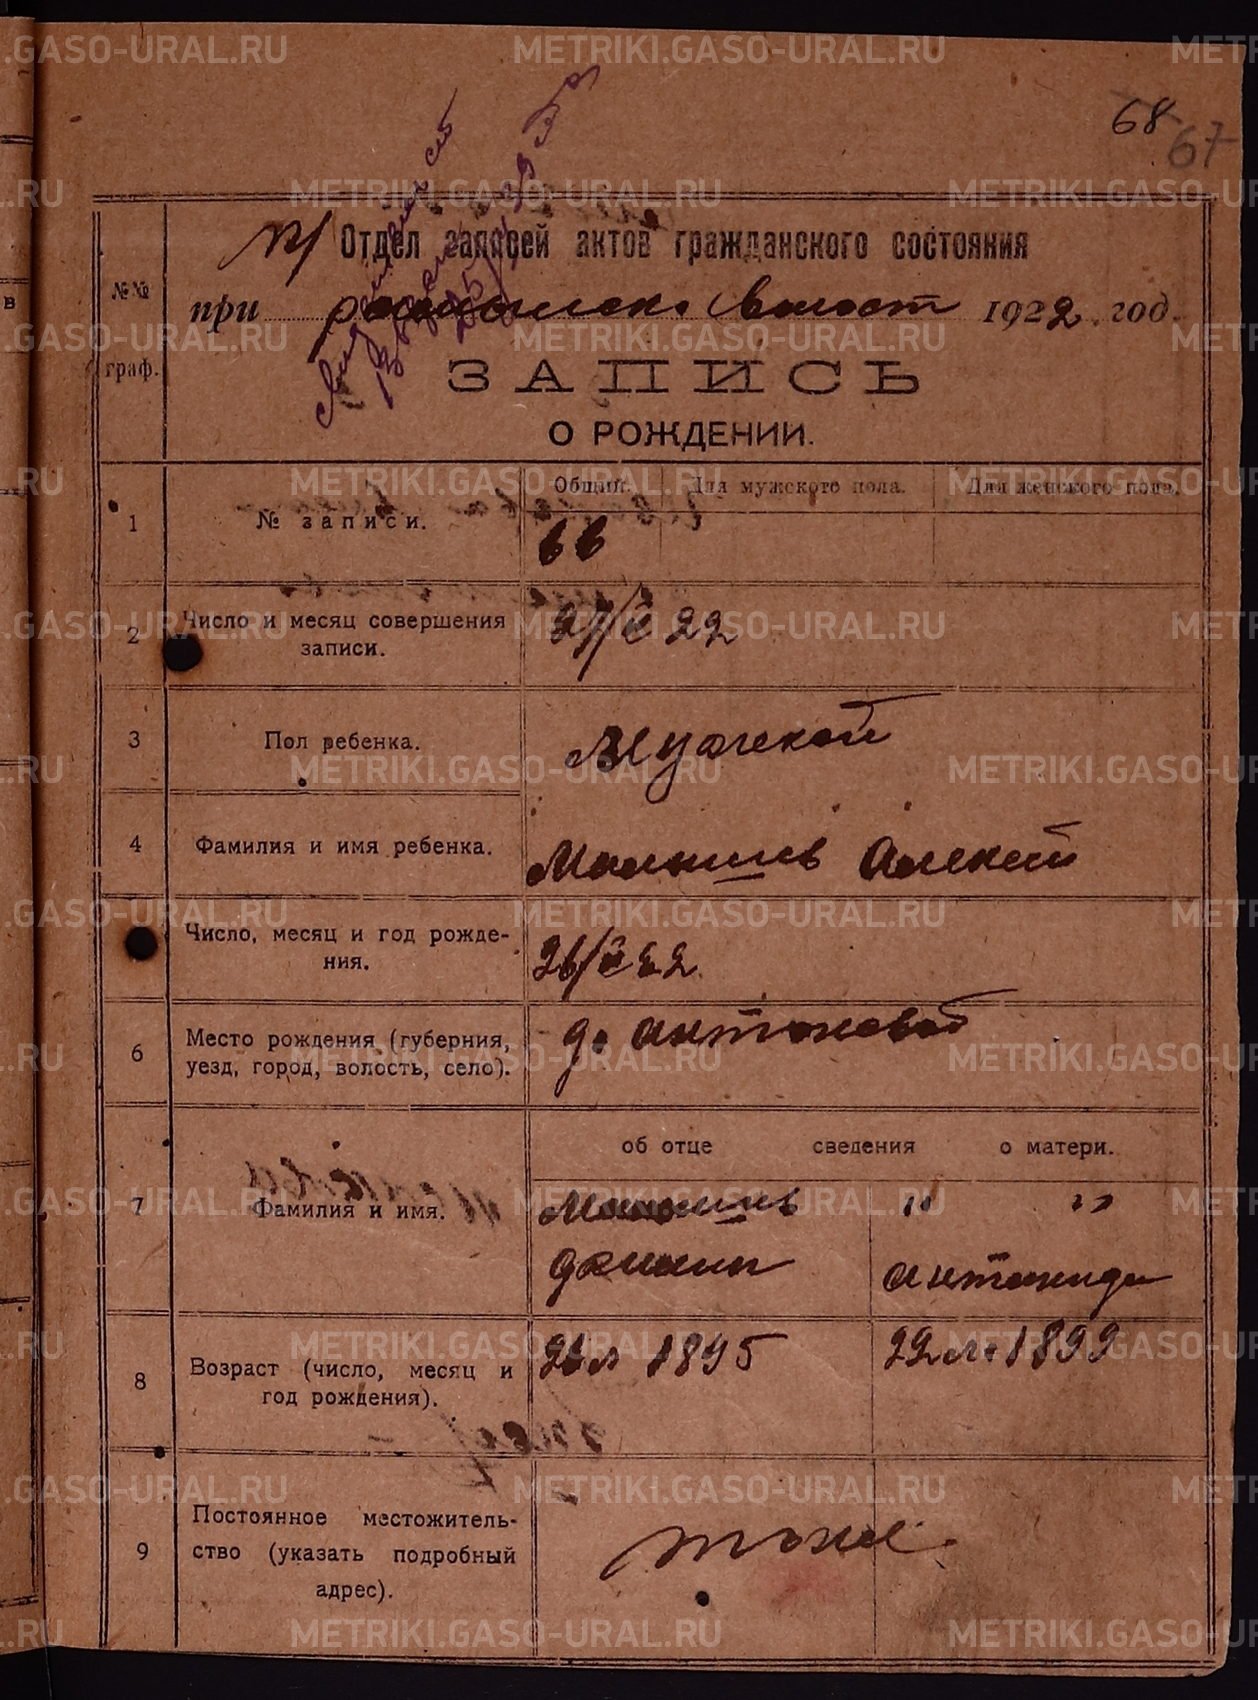 METRIKI.GASO-URAL.RU
68
67
п/ Отдел записей актов гражданского состояния
при волост 1922 год.
№№ граф.
ЗАПИСЬ
О РОЖДЕНИИ.
Общий. Для мужского пола. Для женского пола.
1 № записи. 66
2 Число и месяц совершения записи. 22
3 Пол ребенка. Мужской
4 Фамилия и имя ребенка. Малышев Алексей
Число, месяц и год рожде-
ния. 22
6 Место рождения (губерния, д. Антоновой
уезд, город, волость, село).
об отце сведения о матери.
7 Фамилия и имя. Малышев " "
Антонида
8 Возраст (число, месяц и год рождения). 26 л 1895 22 л. 1899
9 Постоянное местожитель-
ство (указать подробный
адрес). тоже